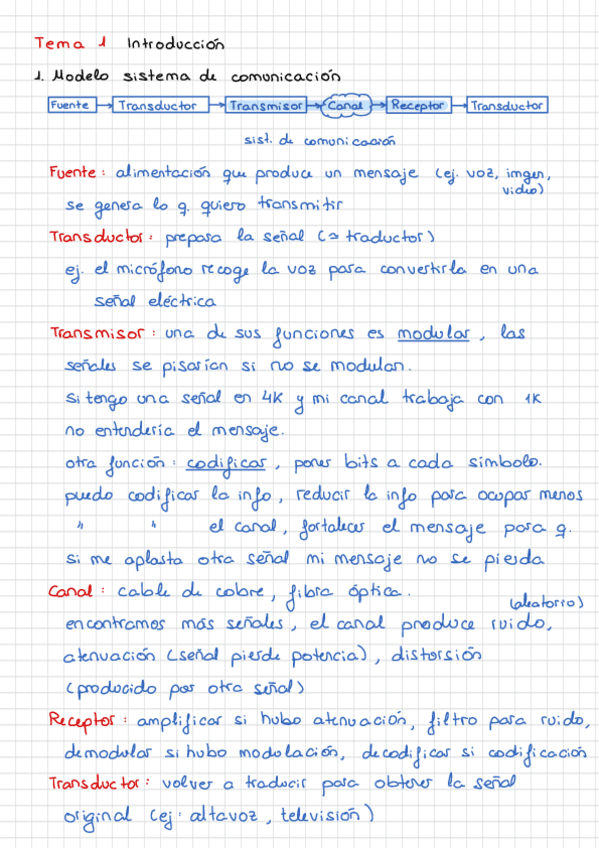 Tema 1 Introducción
1. Modelo sistema de comunicación
Fuente → Transductor → Transmisor → Canal → Receptor → Transductor
sist. de comunicación
Fuente: alimentación que produce un mensaje (ej. voz, imgen, video)
se genera lo q. quiero transmitir
Transductor: prepara la señal (≃ traductor)
ej. el micrófono recoge la voz para convertirla en una
señal eléctrica
Transmisor: una de sus funciones es modular, las
señales se pisarían si no se modulan.
si tengo una señal en 4K y mi canal trabaja con 1K
no entendería el mensaje.
otra función: codificar, poner bits a cada símbolo.
puedo codificar la info, reducir la info para ocupar menos
" " el canal, fortalecer el mensaje para q.
si me aplasta otra señal mi mensaje no se pierda
Canal: cable de cobre, fibra óptica.
(aleatorio)
encontramos más señales, el canal produce ruido,
atenuación (señal pierde potencia), distorsión
(producido por otra señal)
Receptor: amplificar si hubo atenuación, filtro para ruido,
demodular si hubo modulación, decodificar si codificación
Transductor: volver a traducir para obtener la señal
original (ej: altavoz, televisión)